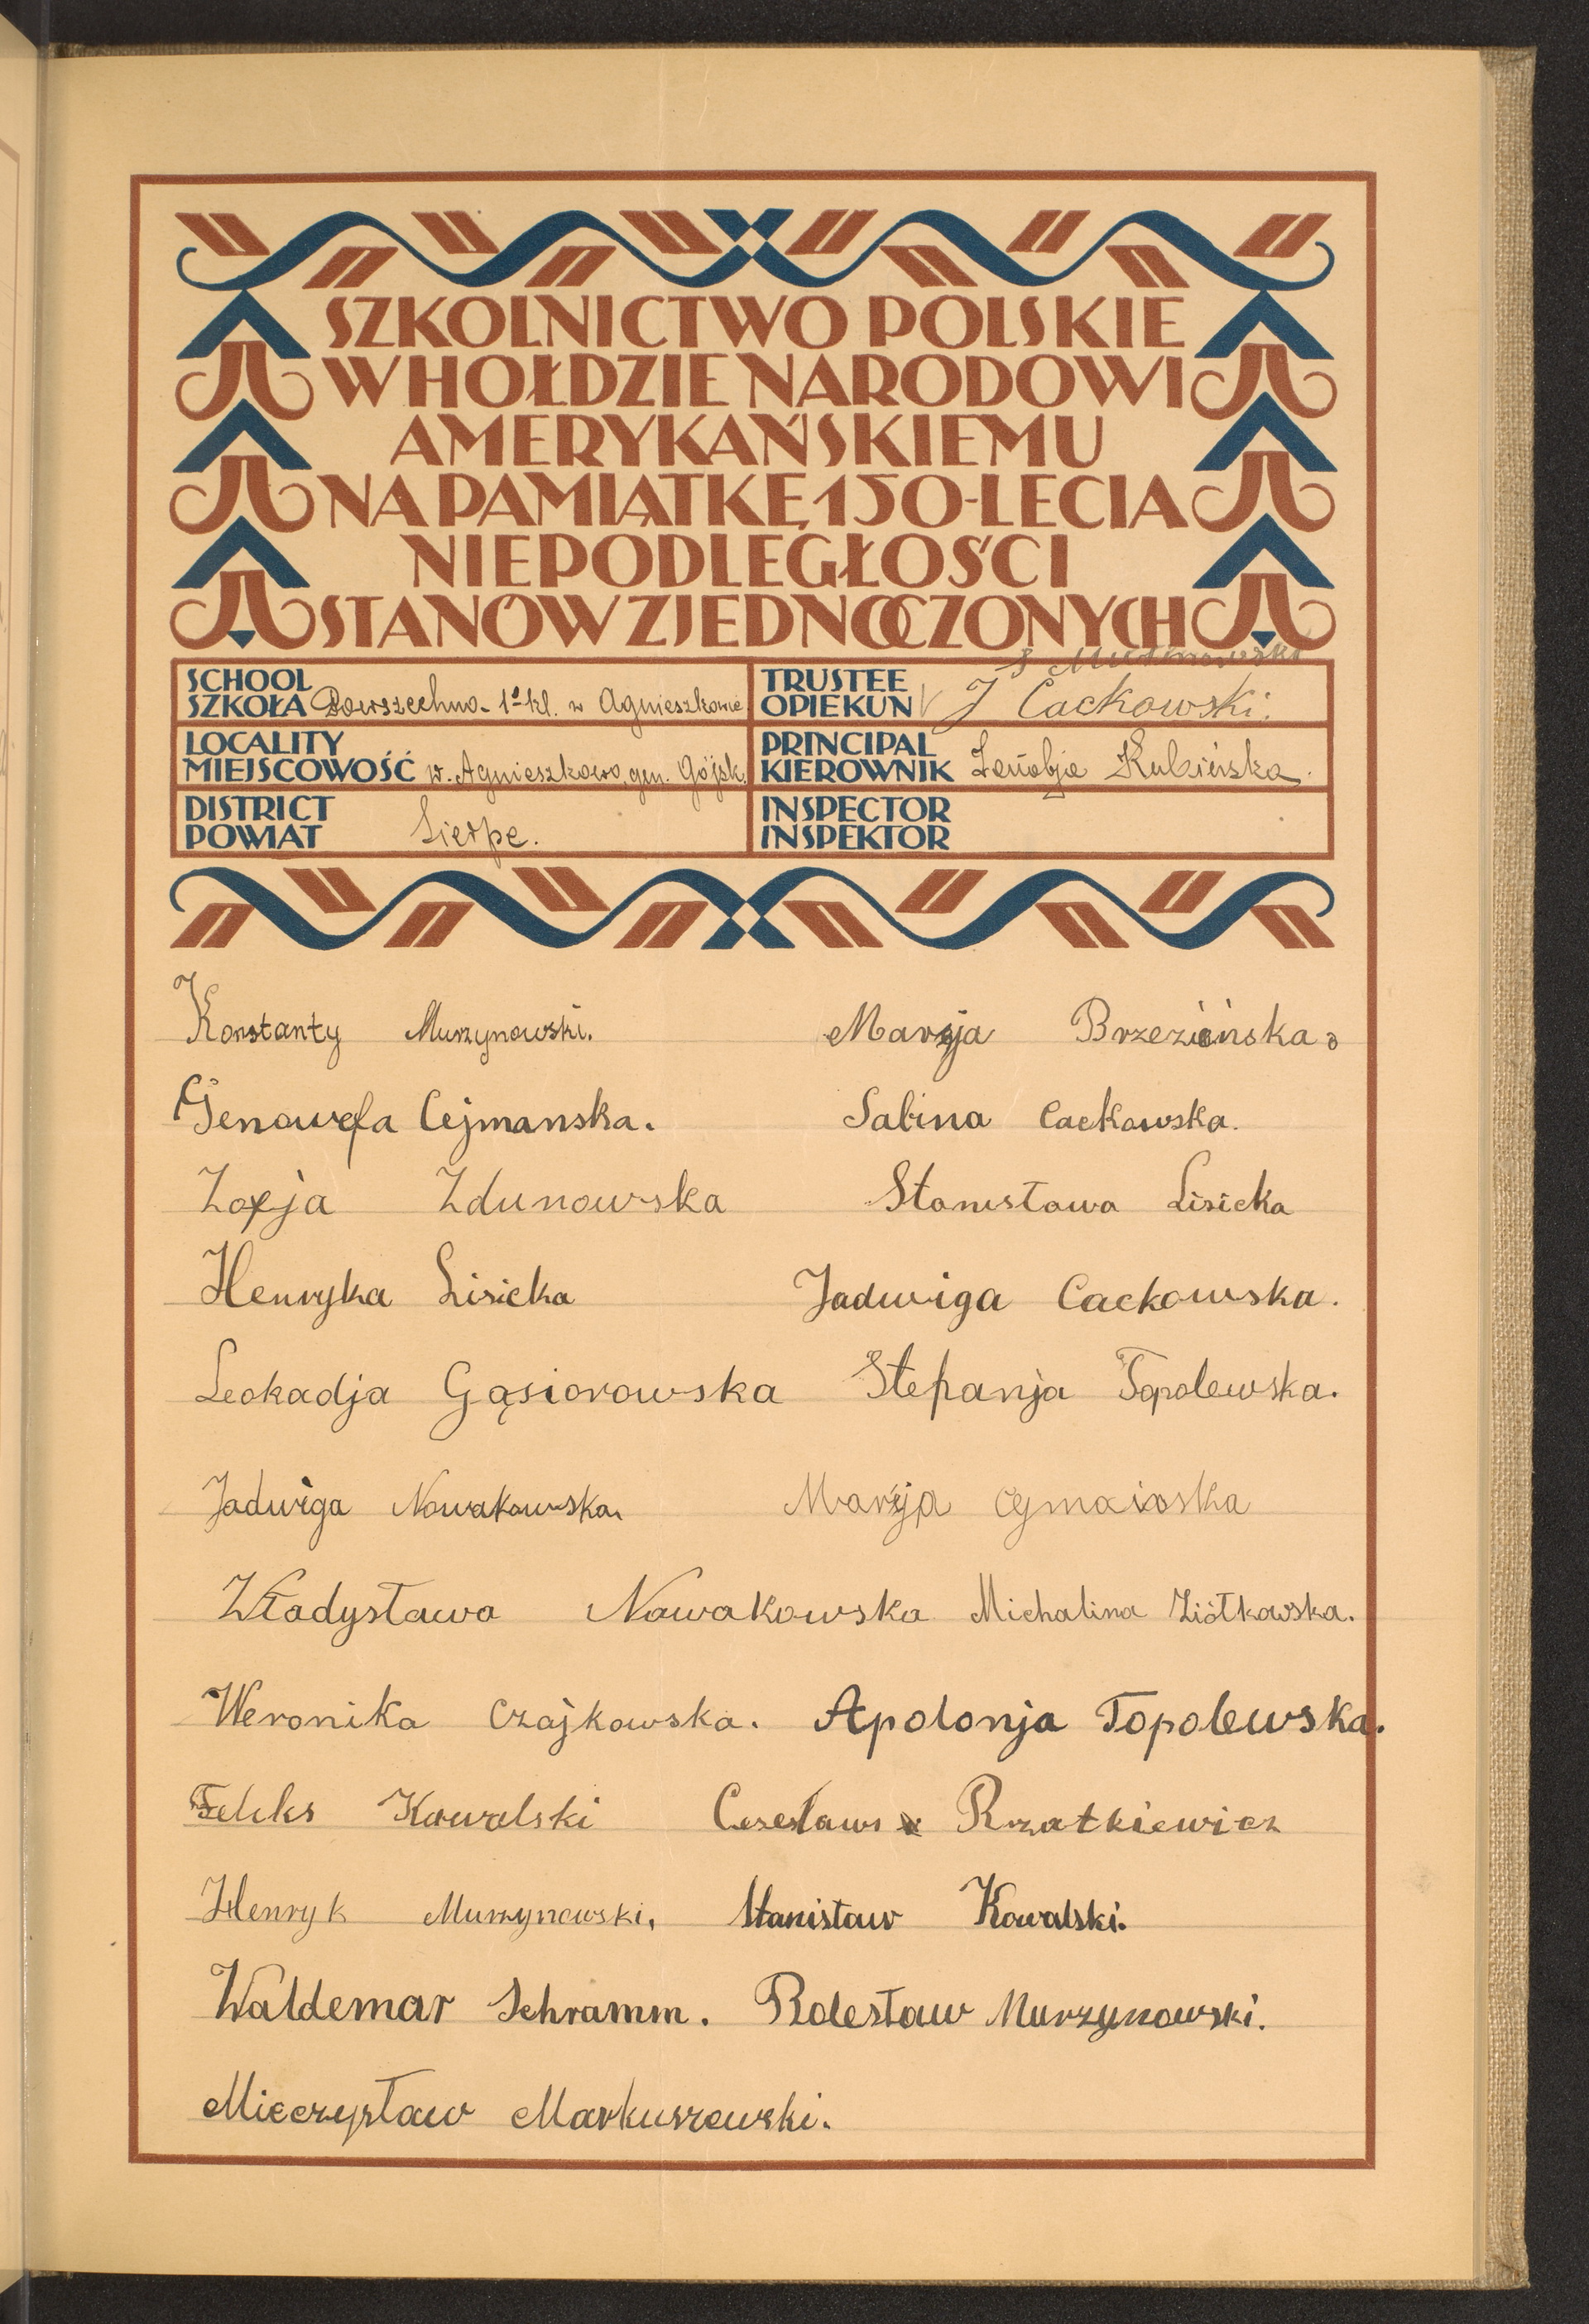 SZKOLNICTWO POLSKIE
W HOŁDZIE NARODOWI
AMERYKAŃSKIEMU
NA PAMIĄTKĘ 150-LECIA
NIEPODLEGŁOŚCI
STANÓW ZJEDNOCZONYCH
SCHOOL
SZKOŁA Powszechna 1º kl. w Agnieszkowie
TRUSTEE
OPIEKUN J Cackowski.
LOCALITY
MIEJSCOWOŚĆ w. Agnieszkowo, gm. Gójsk.
PRINCIPAL
KIEROWNIK Zenobja Kubińska.
DISTRICT
POWIAT Sierpc.
INSPECTOR
INSPEKTOR
Konstanty Murzynowski. Marja Brzezińska.
Genowefa Cejmanska. Sabina Cackowska.
Zofja Zdunowska Stanisława Lisicka
Henryka Lisicka Jadwiga Cackowska.
Leokadja Gąsiorowska Stefanja Topolewska.
Jadwiga Nowakowska. Marja
Władysława Nowakowska Michalina Ziółkowska.
Weronika Czajkowska. Apolonja Topolewska.
Feliks Kowalski Czesław Rzatkiewicz
Henryk Murzynowski, Stanisław Kowalski.
Waldemar Schramm. Bolesław Murzynowski.
Mieczysław Markuszewski.